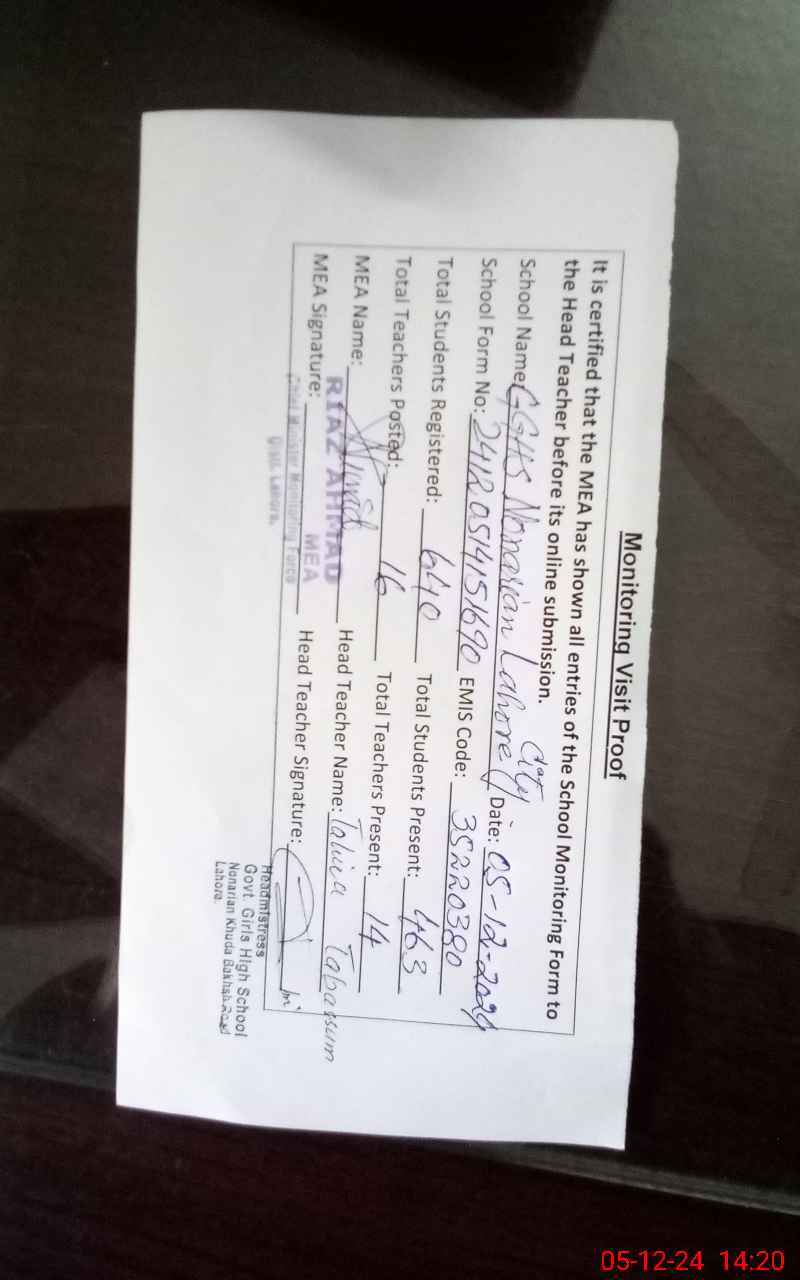 Monitoring Visit Proof
It is certified that the MEA has shown all entries of the School Monitoring Form to
the Head Teacher before its online submission.
School Name: GGHS Nonarian Lahore City Date: 05-12-2024
School Form No: 24120514151690 EMIS Code: 35220380
Total Students Registered: 640 Total Students Present: 463
Total Teachers Posted: 16 Total Teachers Present: 14
MEA Name: Head Teacher Name: Tahira Tabassum
RIAZ AHMAD
MEA
MEA Signature: Head Teacher Signature:
Chief Minister Monitoring Force
Distt. Lahore.
Headmistress
Govt. Girls High School
Nonarian Khuda Bakhsh Road
Lahore.
05-12-24 14:20